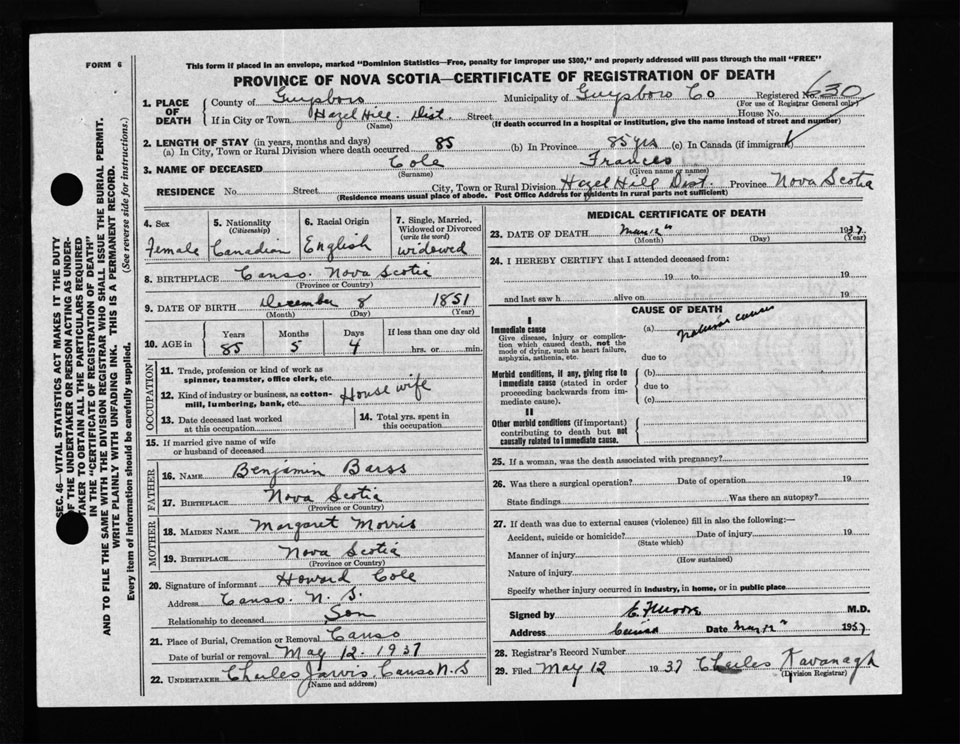 FORM 6
This form if placed in an envelope, marked "Dominion Statistics—Free, penalty for improper use $300," and properly addressed will pass through the mail "FREE"
PROVINCE OF NOVA SCOTIA—CERTIFICATE OF REGISTRATION OF DEATH
1. PLACE OF DEATH
County of Guysboro Municipality of Guysboro Co Registered No. 630
(For use of Registrar General only)
If in City or Town Hazel Hill. Dist. Street House No.
(Name) (If death occurred in a hospital or institution, give the name instead of street and number)
2. LENGTH OF STAY (in years, months and days)
(a) In City, Town or Rural Division where death occurred 85 (b) In Province 85 yrs (c) In Canada (if immigrant)
3. NAME OF DECEASED Cole Frances
(Surname) (Given name or names)
RESIDENCE No. Street City, Town or Rural Division Hazel Hill Dist. Province Nova Scotia
(Residence means usual place of abode. Post Office Address for residents in rural parts not sufficient)
4. Sex Female
5. Nationality (Citizenship) Canadian
6. Racial Origin English
7. Single, Married, Widowed or Divorced (write the word) widowed
8. BIRTHPLACE Canso. Nova Scotia
(Province or Country)
9. DATE OF BIRTH December 8 1851
(Month) (Day) (Year)
10. AGE in Years 85 Months 5 Days 4 If less than one day old hrs. or min.
OCCUPATION
11. Trade, profession or kind of work as spinner, teamster, office clerk, etc.
12. Kind of industry or business, as cotton-mill, lumbering, bank, etc. House wife
13. Date deceased last worked at this occupation
14. Total yrs. spent in this occupation
15. If married give name of wife or husband of deceased
FATHER
16. NAME Benjamin Barss
17. BIRTHPLACE Nova Scotia
(Province or Country)
MOTHER
18. MAIDEN NAME Margaret Morris
19. BIRTHPLACE Nova Scotia
(Province or Country)
20. Signature of informant Howard Cole
Address Canso. N. S.
Relationship to deceased Son
21. Place of Burial, Cremation or Removal Canso
Date of burial or removal May 12 1937
22. UNDERTAKER Charles Jarvis, Canso N.S
(Name and address)
MEDICAL CERTIFICATE OF DEATH
23. DATE OF DEATH 1937
(Month) (Day) (Year)
24. I HEREBY CERTIFY that I attended deceased from:
19 to 19
and last saw h alive on 19
CAUSE OF DEATH
I
Immediate cause
Give disease, injury or complication which caused death, not the mode of dying, such as heart failure, asphyxia, asthenia, etc.
(a) natural causes
due to
Morbid conditions, if any, giving rise to immediate cause (stated in order proceeding backwards from immediate cause).
(b)
due to
(c)
II
Other morbid conditions (if important) contributing to death but not causally related to immediate cause.
25. If a woman, was the death associated with pregnancy?
26. Was there a surgical operation? Date of operation 19
State findings Was there an autopsy?
27. If death was due to external causes (violence) fill in also the following:—
Accident, suicide or homicide? Date of injury 19
(State which)
Manner of injury
(How sustained)
Nature of injury
Specify whether injury occurred in industry, in home, or in public place
Signed by E. F. Moore M.D.
Address Canso Date 1937
28. Registrar's Record Number
29. Filed May 12 1937 Charles Kavanagh
(Division Registrar)
SEC. 46—VITAL STATISTICS ACT MAKES IT THE DUTY
OF THE UNDERTAKER OR PERSON ACTING AS UNDER-
TAKER TO OBTAIN ALL THE PARTICULARS REQUIRED
IN THE "CERTIFICATE OF REGISTRATION OF DEATH"
AND TO FILE THE SAME WITH THE DIVISION REGISTRAR WHO SHALL ISSUE THE BURIAL PERMIT.
WRITE PLAINLY WITH UNFADING INK. THIS IS A PERMANENT RECORD.
Every item of information should be carefully supplied. (See reverse side for instructions.)